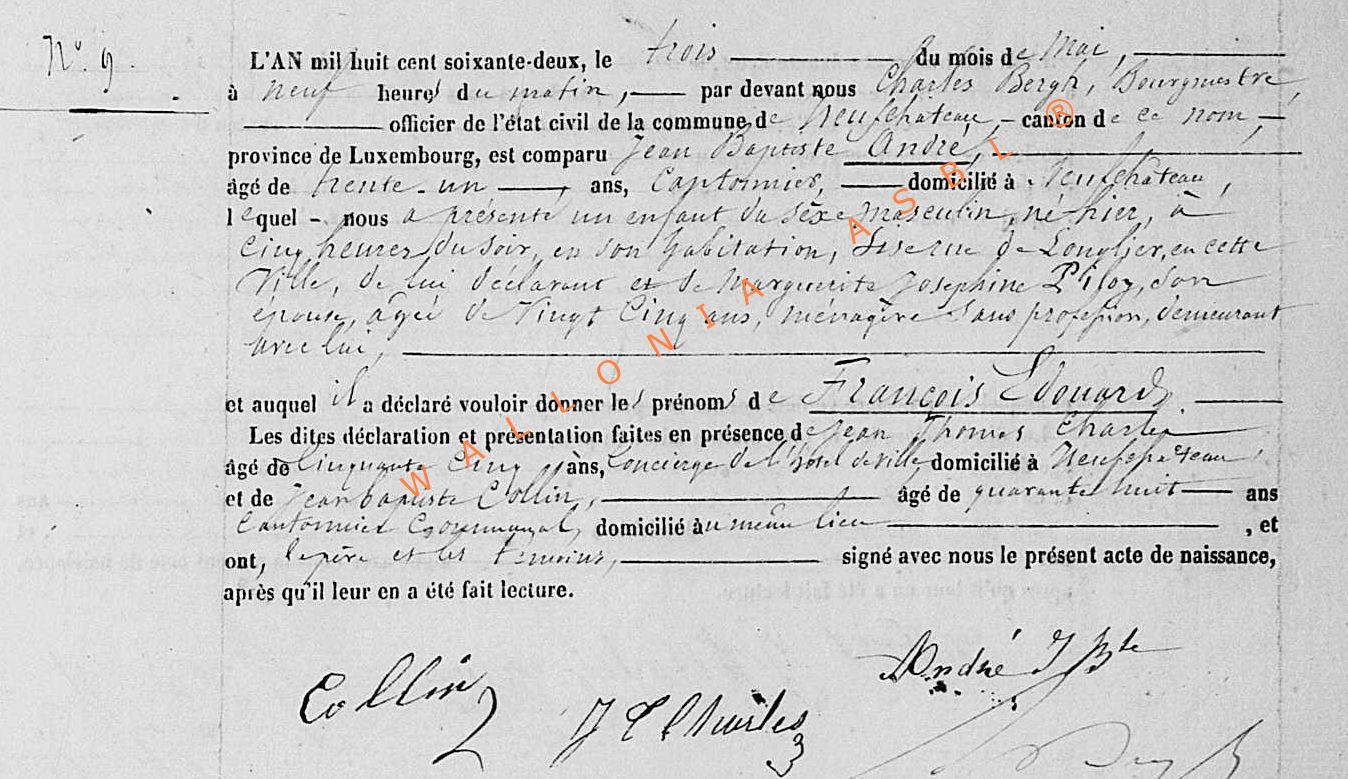 N° 9.
L'AN mil huit cent soixante-deux, le trois du mois de Mai,
à neuf heures du matin, par devant nous Charles Bergh, Bourgmestre,
officier de l'état civil de la commune de Neufchateau, canton de ce nom,
province de Luxembourg, est comparu Jean Baptiste André,
âgé de trente-un ans, Cantonnier, domicilié à Neufchateau,
lequel nous a présenté un enfant du sexe masculin, né hier, à
Cinq heures du soir, en son habitation, de Longlier, en cette
Ville, de lui déclarant et de Marguerite Josephine son
épouse, agée de Vingt Cinq ans, ménagère sans profession, demeurant
avec lui,
et auquel il a déclaré vouloir donner les prénoms de François Edouard.
Les dites déclaration et présentation faites en présence de Jean Thomas Charles
âgé de Cinquante Cinq ans, Concierge de l'hotel de ville domicilié à Neufchateau
et de Jean baptiste Collin, âgé de quarante huit ans
Cantonnier Communal, domicilié au même lieu, et
ont, le père et les témoins, signé avec nous le présent acte de naissance,
après qu'il leur en a été fait lecture.
André J Bte
Collin
J T Charles
WALLONIA ASBL ®